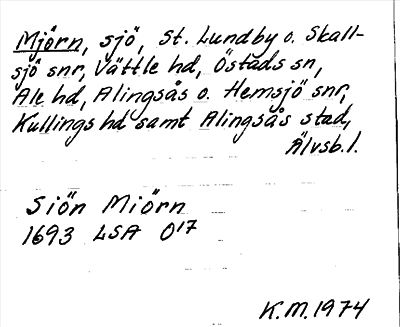 Mjörn, sjö, St. Lundby o. Skall-
sjö snr, Vättle hd, Östads sn,
Ale hd, Alingsås o. Hemsjö snr,
Kullings hd samt Alingsås stad,
Älvsb. l.
Siön Miörn
1693 LSA O17
K.M. 1974